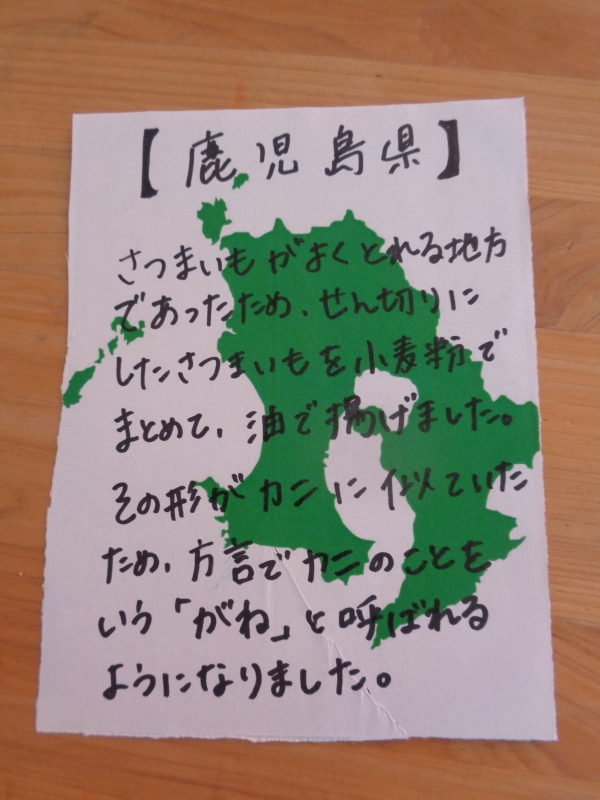 【鹿児島県】
さつまいもがよくとれる地方
であったため、せん切りに
したさつまいもを小麦粉で
まとめて、油で揚げました。
その形がカニに似ていた
ため、方言でカニのことを
いう「がね」と呼ばれる
ようになりました。